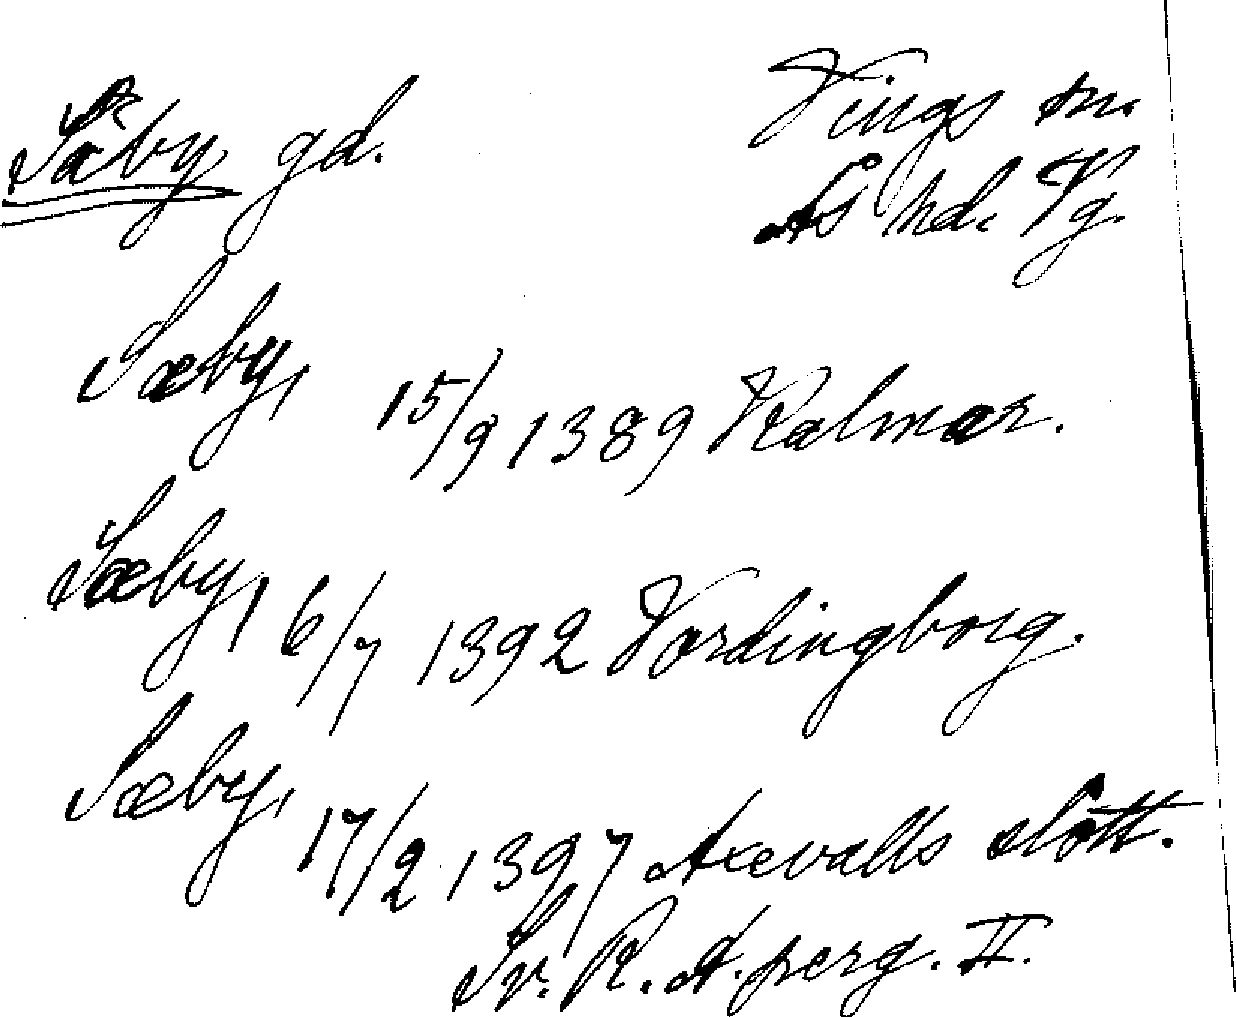 Säby gd. Vings sn.
Ås hd. Vg.
Sæby, 15/9 1389 Kalmar.
Sæby, 6/7 1392 Vordingborg.
Sæby, 17/2 1397 Axevalls slott.
Sv. R. A. perg. II.